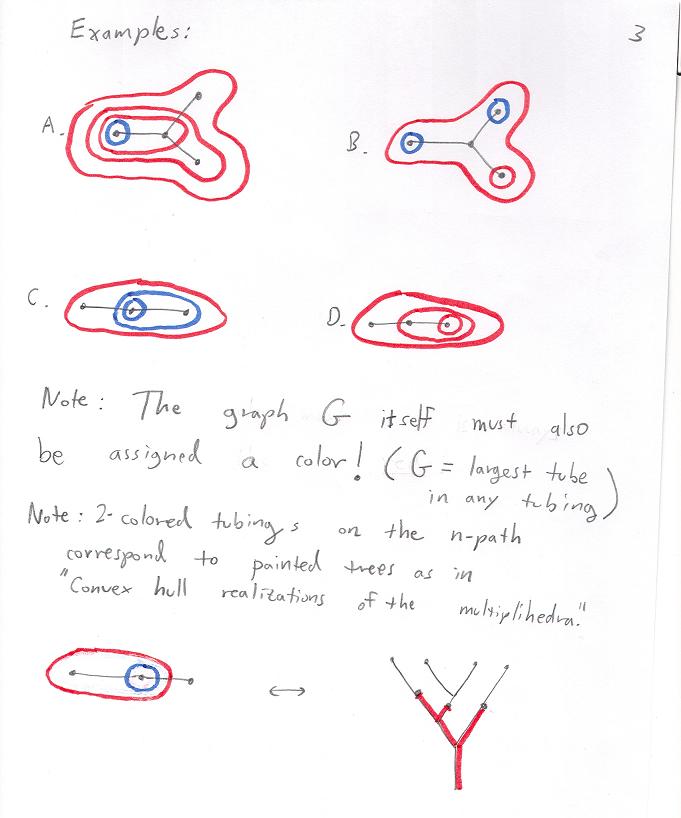 Examples:
3
A.
B.
C.
D.
Note: The graph G itself must also
be assigned a color! (G = largest tube
in any tubing)
Note: 2-colored tubings on the n-path
correspond to painted trees as in
"Convex hull realizations of the multiplihedra."